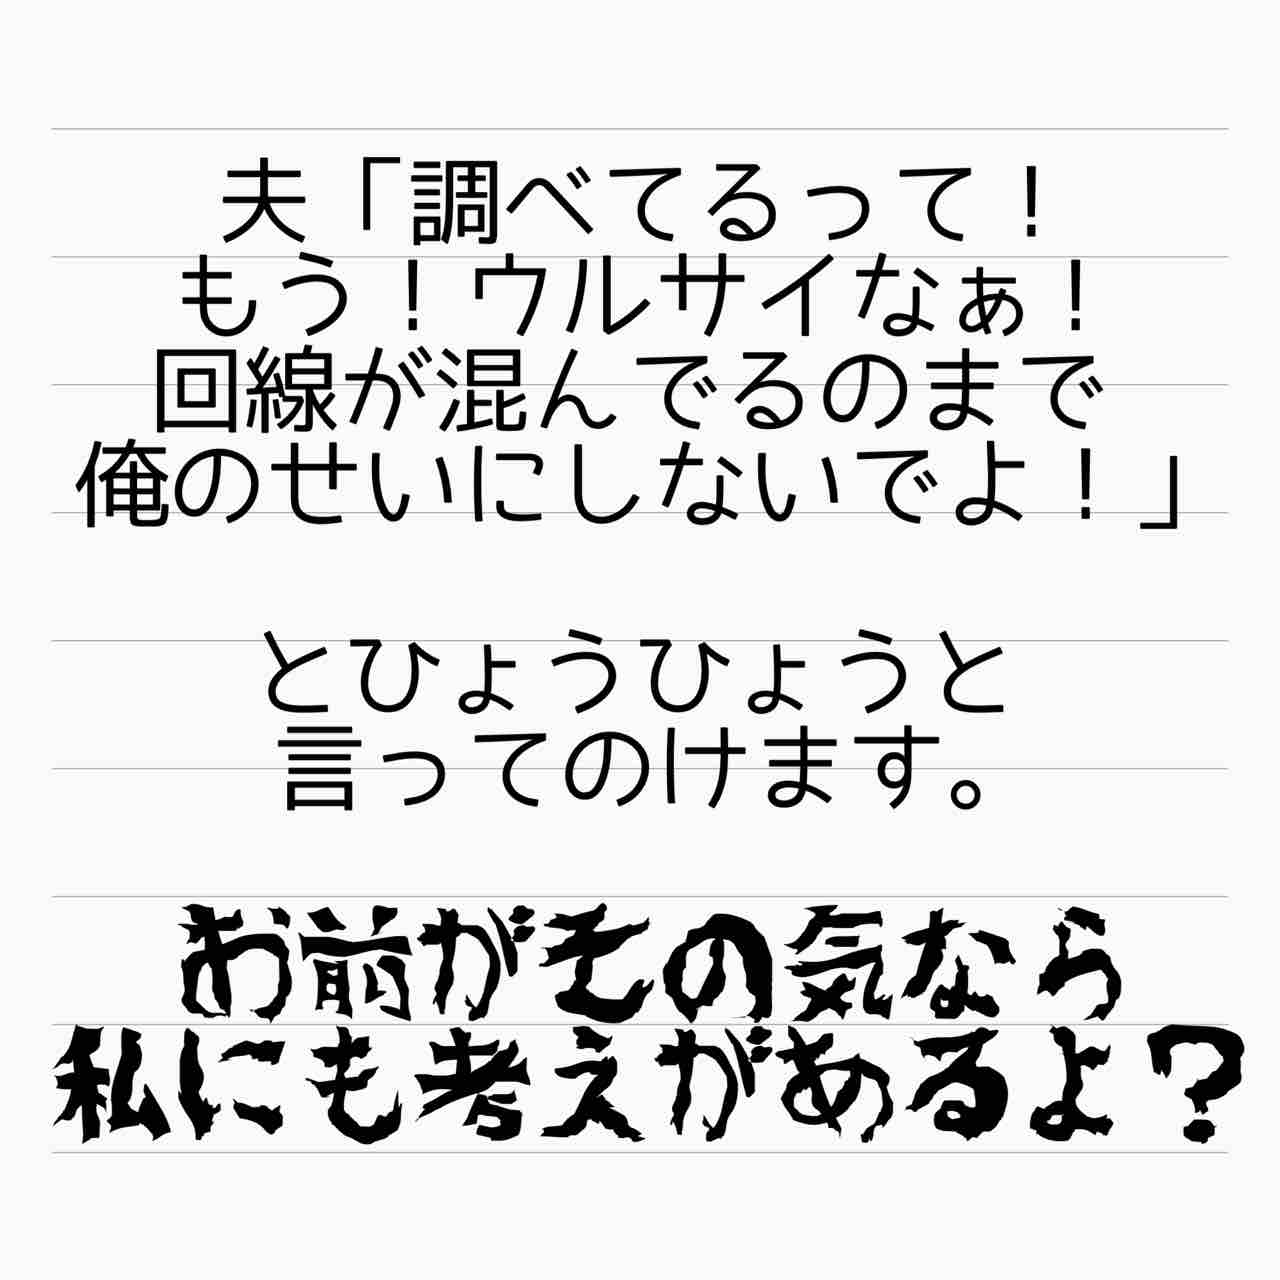 夫「調べてるって！
もう！ウルサイなぁ！
回線が混んでるのまで
俺のせいにしないでよ！」
とひょうひょうと
言ってのけます。
お前がその気なら
私にも考えがあるよ？